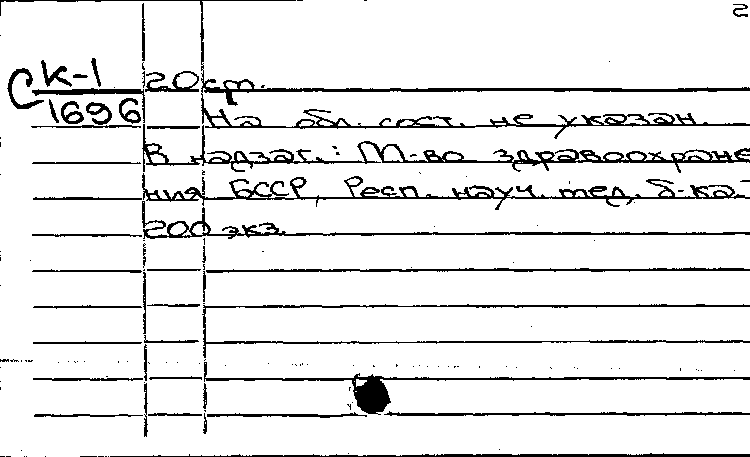 2
С К-1 20 ст.
1696 На обл. сост. не указан.
В надзаг.: М-во здравоохране
ния БССР, Респ. науч. мед. б-ка.
200 экз.